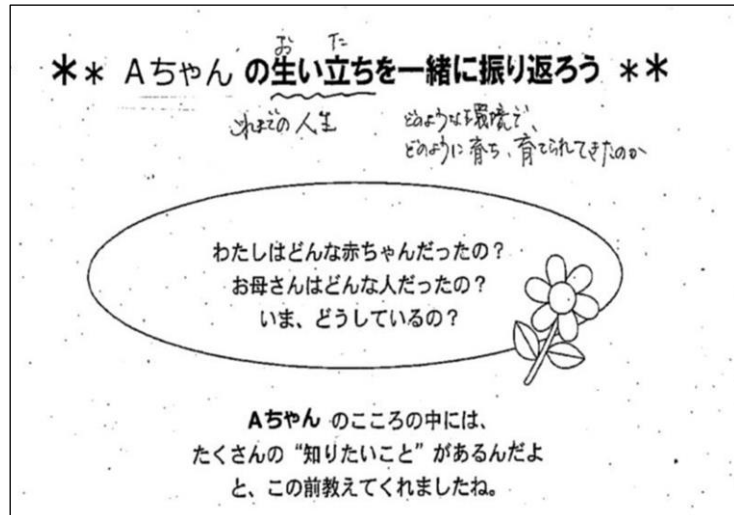 お た
＊＊ Aちゃん の生い立ちを一緒に振り返ろう ＊＊
これまでの人生
どのような環境で、
どのように育ち、育てられてきたのか
わたしはどんな赤ちゃんだったの？
お母さんはどんな人だったの？
いま、どうしているの？
Aちゃん のこころの中には、
たくさんの“知りたいこと”があるんだよ
と、この前教えてくれましたね。